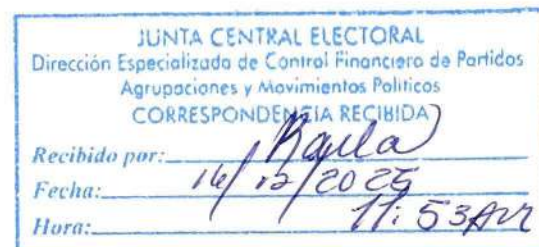 JUNTA CENTRAL ELECTORAL
Dirección Especializada de Control Financiero de Partidos
Agrupaciones y Movimientos Politicos
CORRESPONDENCIA RECIBIDA
Recibido por:
Fecha: 16/12/2025
Hora: 11:53 AM